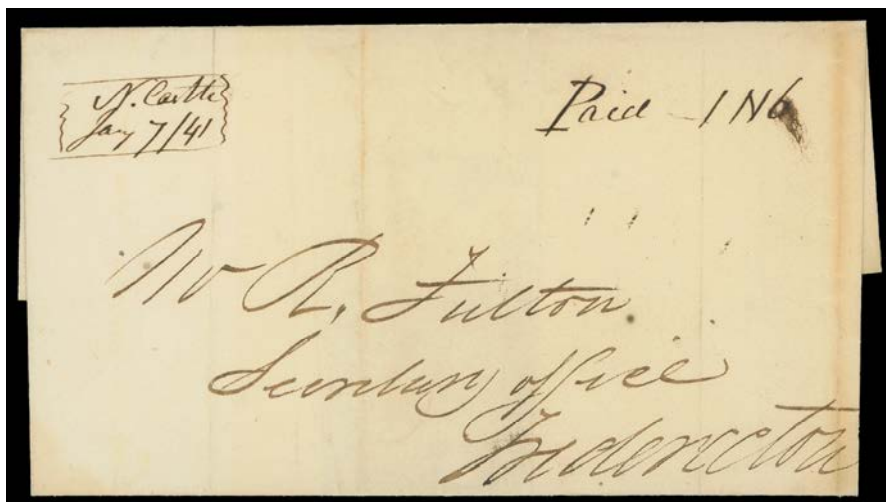 N. Castle
Jany 7/41
Paid – 1 N 6
Mr R. Fulton
Secretary office
Fredericton